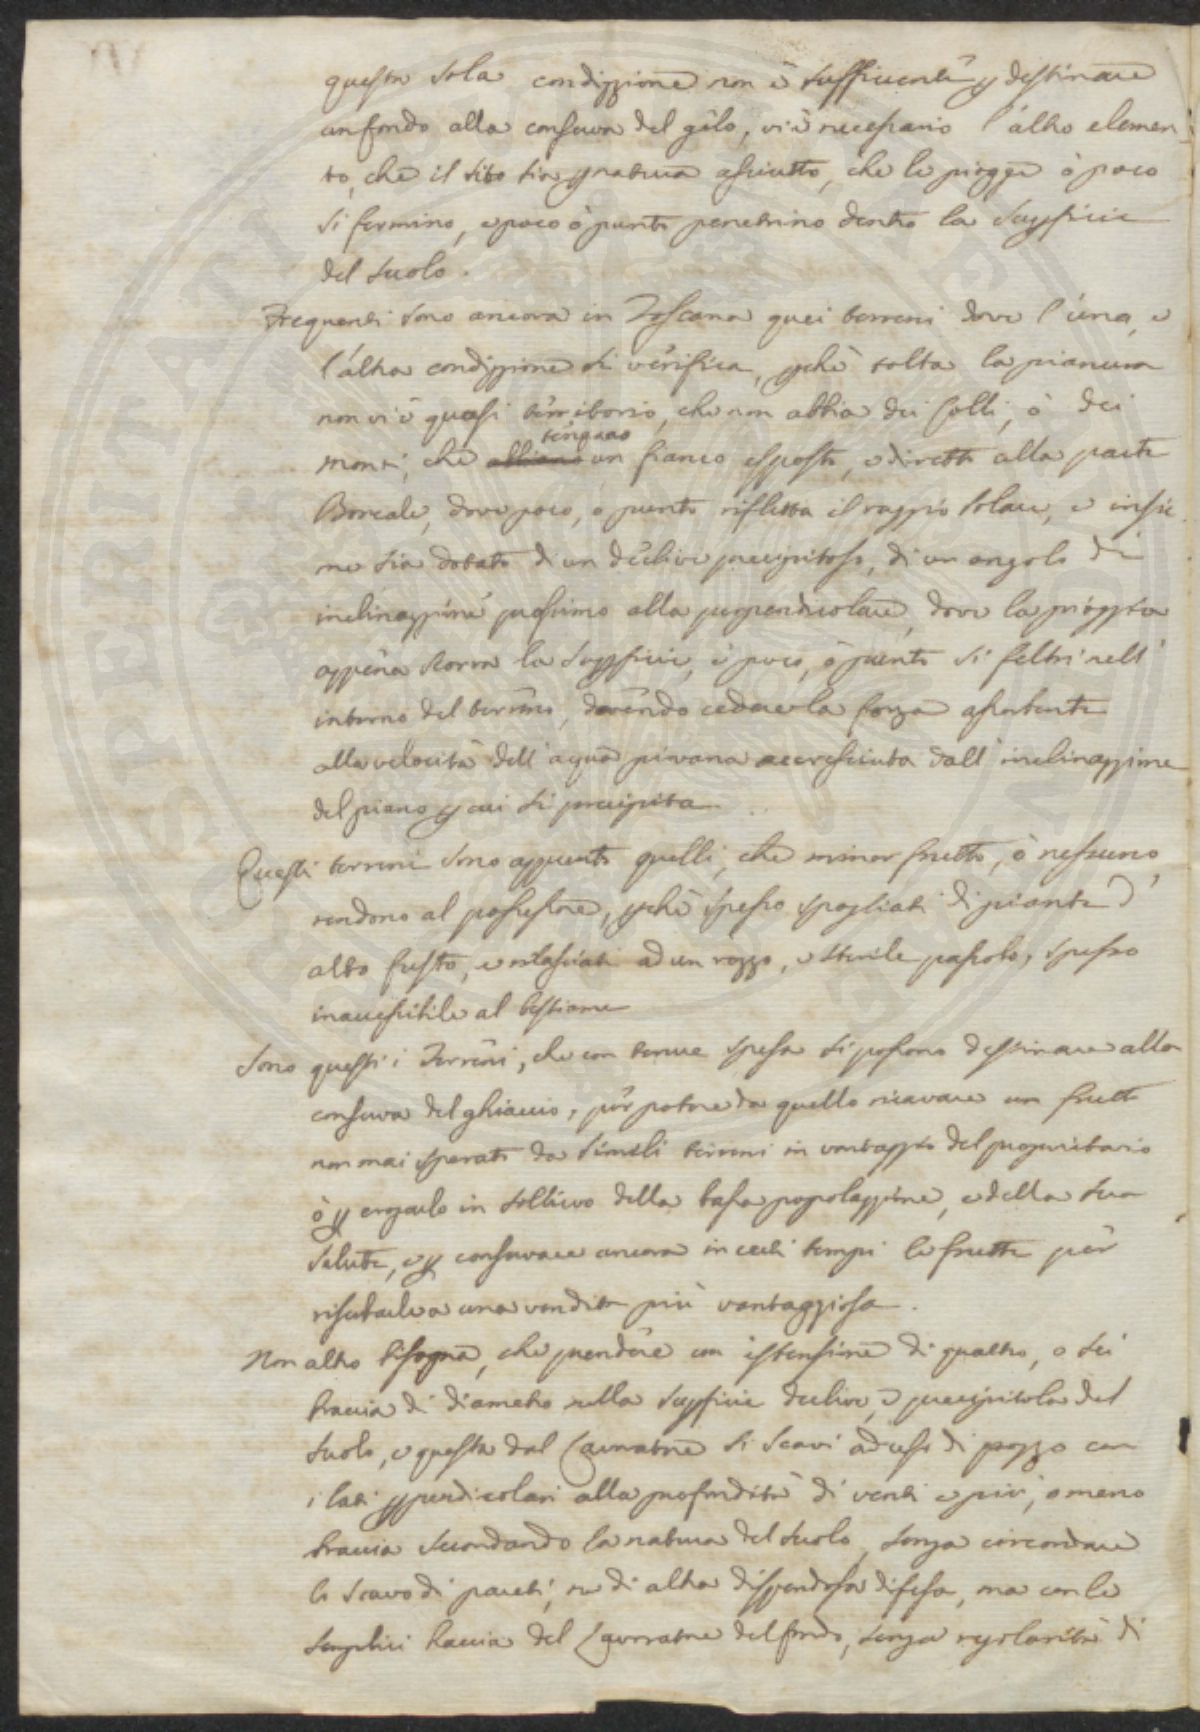 questa sola condizzione non è sufficiente p destinare
un fondo alla conserva del gelo, vi è necessario l'altro elemen
to, che il sito sia p natura asciutto, che le piogge ò poco
si fermino, e poco ò punto penetrino dentro la supficie
del suolo.
Frequenti sono ancora in Toscana quei terreni dove l'una, e
l'altra condizzione si verifica, pchè tolta la pianura
non vi è quasi territorio, che non abbia dei Colli, ò dei
tengano
monti, che abbiano un fianco esposto, e diretto alla parte
Boreale, dove poco, o punto rifletta il raggio solare, e insie
me sia dotato di un declive precipitoso, di un angolo di
inclinazzione prossimo alla perpendicolare, dove la pioggia
appena scorra la supficie, e poco, ò punto si feltri nell'
interno del terreno, dovendo cedere la forza assorbente
alla velocità dell'aqua piovana accresciuta dall'inclinazzione
del piano p cui si precipita.
Questi terreni sono appunto quelli, che minor frutto, ò nessuno
rendono al possessore, pchè spesso spogliati di piante d'
alto fusto, e rilasciati ad un rozzo, e sterile pascolo, spesso
inaccessibile al bestiame
Sono questi i Terreni, che con tenue spesa si possono destinare alla
conserva del ghiaccio, pér potere da quello ricavare un frutto
non mai sperato da simili terreni in vantaggio del proprietario
ò p erogarlo in sollievo della bassa popolazzione, e della sua
salute, e p conservare ancora in certi tempi le frutte pér
riserbarle a una vendita più vantaggiosa.
Non altro bisogna, che prendere un estensione di quattro, o sei
braccia di diametro nella supficie declive, e precipitosa del
suolo, e questa dal Lavoratore si scavi ad uso di pozzo con
i lati ppendicolari alla profondità di venti e più, o meno
braccia secondando la natura del suolo, senza circondare
lo scavo di pareti, ne di altra dispendiosa difesa, ma con le
semplici braccia del Lavoratore del fondo, senza regolarità di